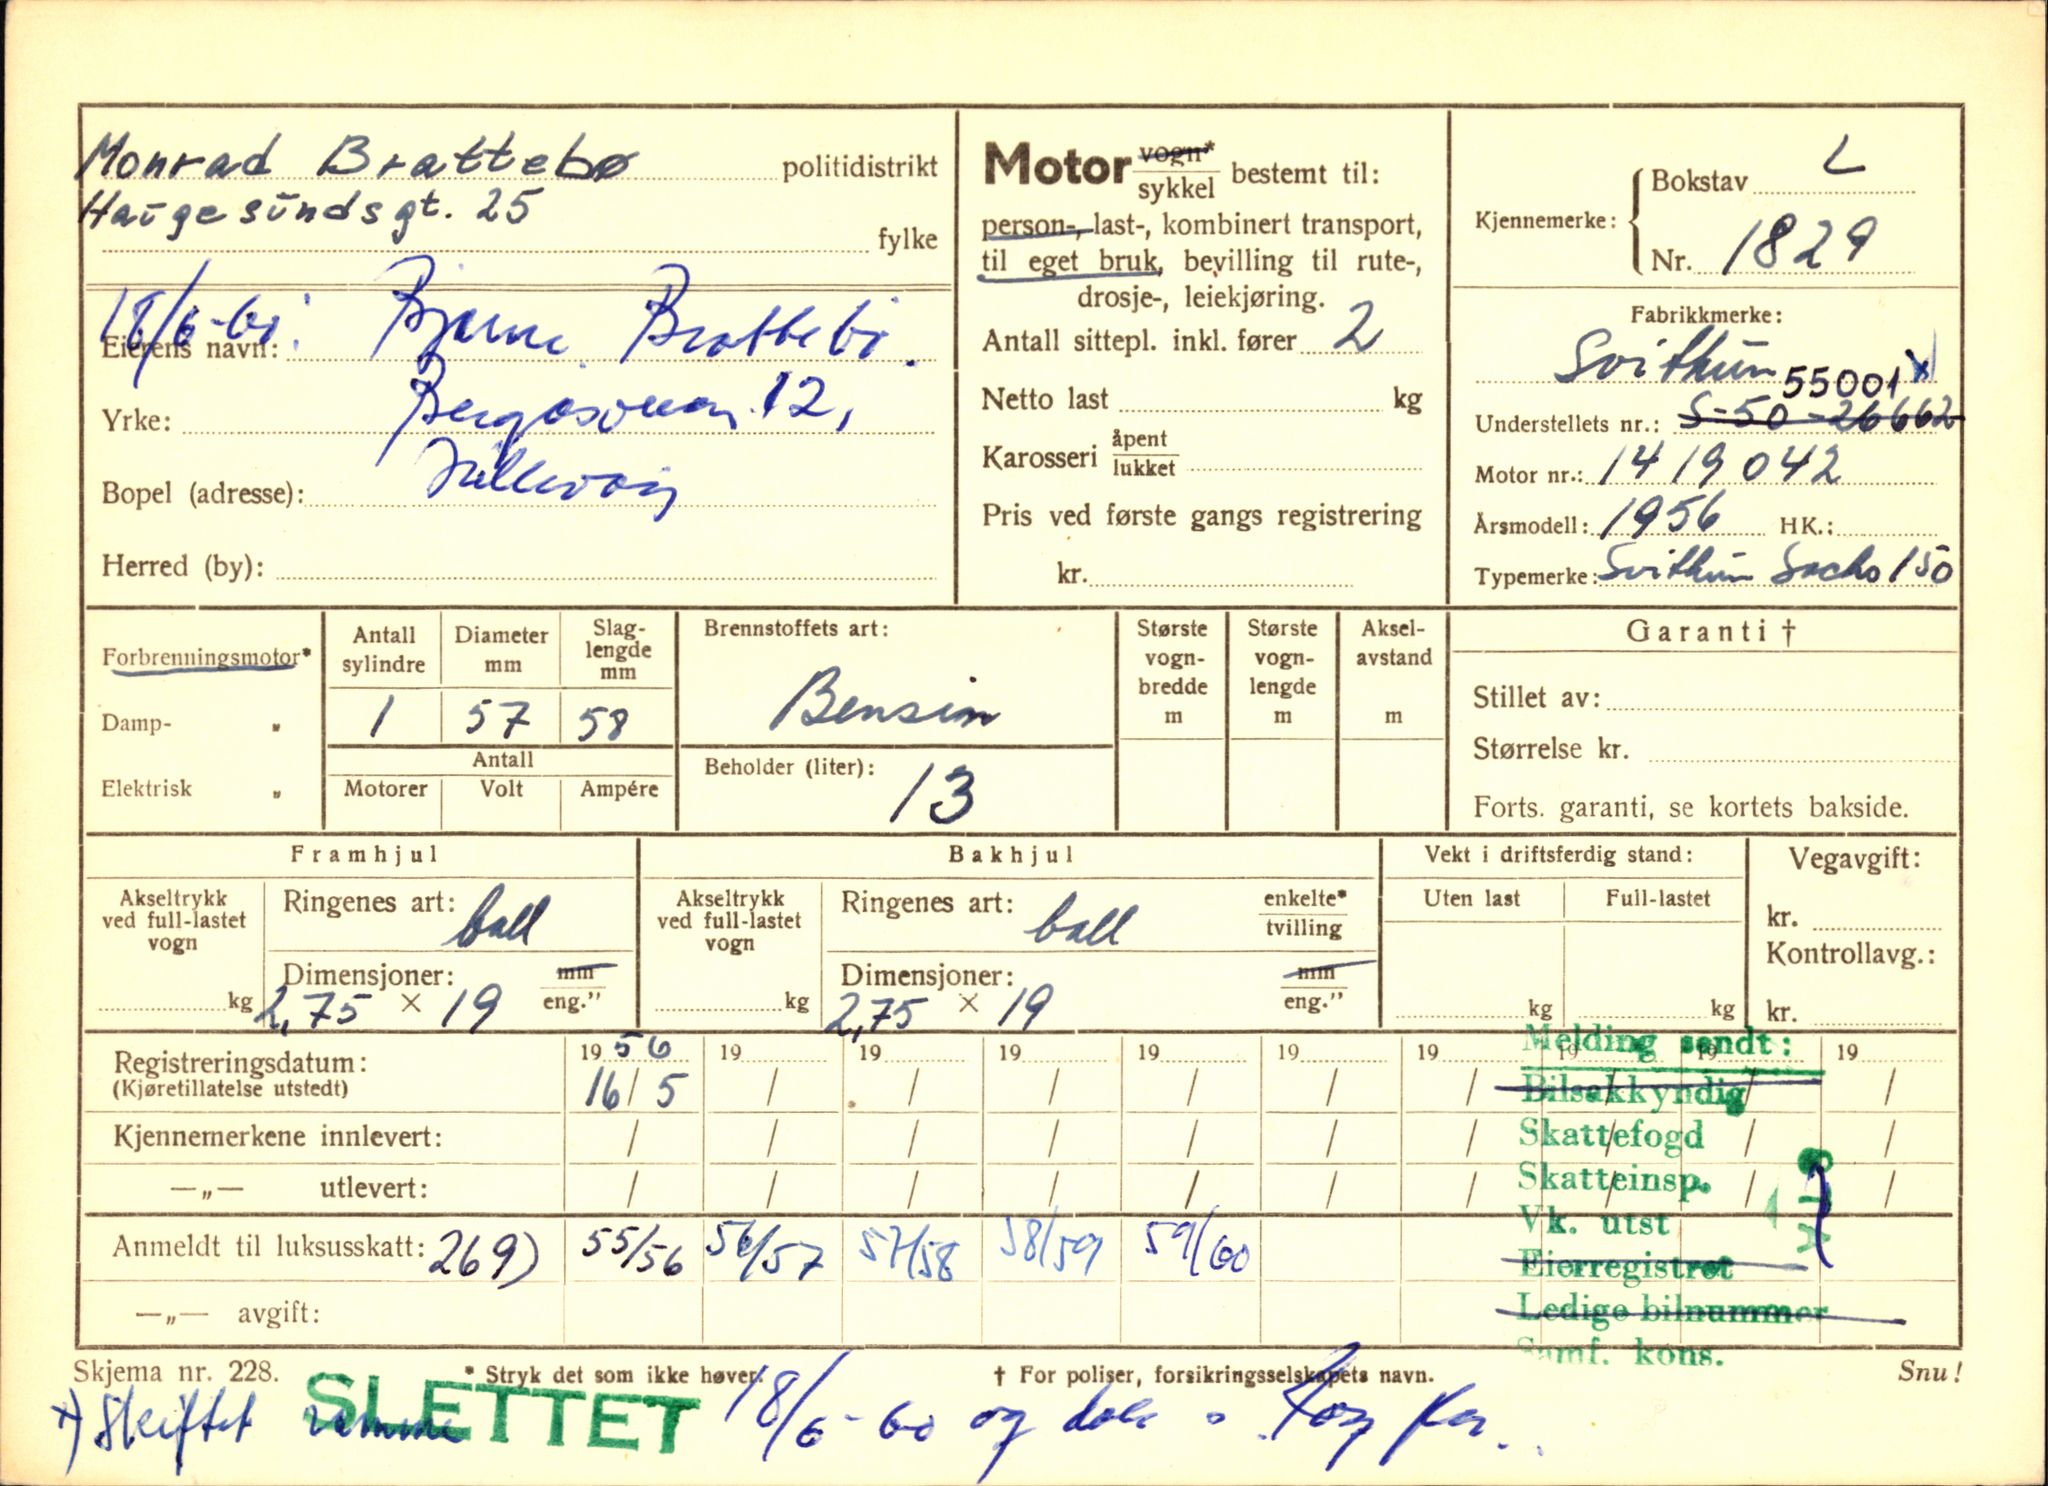 Monrad Brattebø politidistrikt
Haugesundsgt. 25
fylke
18/6-60: Bjarne Brattebø.
Eierens navn:
Bergåsveien 12,
Yrke:
Bopel (adresse):
Herred (by):
Motor vogn* sykkel bestemt til:
person-, last-, kombinert transport,
til eget bruk, bevilling til rute-,
drosje-, leiekjøring.
Antall sittepl. inkl. fører 2
Netto last kg
Karosseri åpent lukket
Pris ved første gangs registrering
kr.
Kjennemerke: Bokstav L
Nr. 1829
Fabrikkmerke:
Svithun
55001 x)
Understellets nr.: S-50-26662
Motor nr.: 1419042
Årsmodell: 1956 HK.:
Typemerke: Svithun Sachs 150
Forbrenningsmotor*
Damp- „
Elektrisk „
Antall sylindre
Diameter mm
Slag-
lengde
mm
1 57 58
Antall
Motorer Volt Ampére
Brennstoffets art:
Bensin
Beholder (liter):
13
Største
vogn-
bredde
m
Største
vogn-
lengde
m
Aksel-
avstand
m
Garanti †
Stillet av:
Størrelse kr.
Forts. garanti, se kortets bakside.
Framhjul
Akseltrykk
ved full-lastet
vogn
kg
Ringenes art: ball
Dimensjoner: mm
2,75 × 19 eng."
Bakhjul
Akseltrykk
ved full-lastet
vogn
kg
Ringenes art: ball enkelte* tvilling
Dimensjoner: mm
2,75 × 19 eng."
Vekt i driftsferdig stand:
Uten last Full-lastet
kg kg
Vegavgift:
kr.
Kontrollavg.:
kr.
Registreringsdatum: 1956 19 19 19 19 19 19 19 19 19
(Kjøretillatelse utstedt) 16/5 / / / / / / / / /
Kjennemerkene innlevert: / / / / / / / / / /
—„— utlevert: / / / / / / / / / /
Anmeldt til luksusskatt: 269) 55/56 56/57 57/58 58/59 59/60
—„— avgift:
Melding sendt:
Bilsakkyndig
Skattefogd
Skatteinsp.
Vk. utst
Eierregistret
Ledige bilnummer
Samf. kons.
Skjema nr. 228. * Stryk det som ikke høver. † For poliser, forsikringsselskapets navn. Snu!
x) Skiftet ramme
SLETTET
18/6-60 og